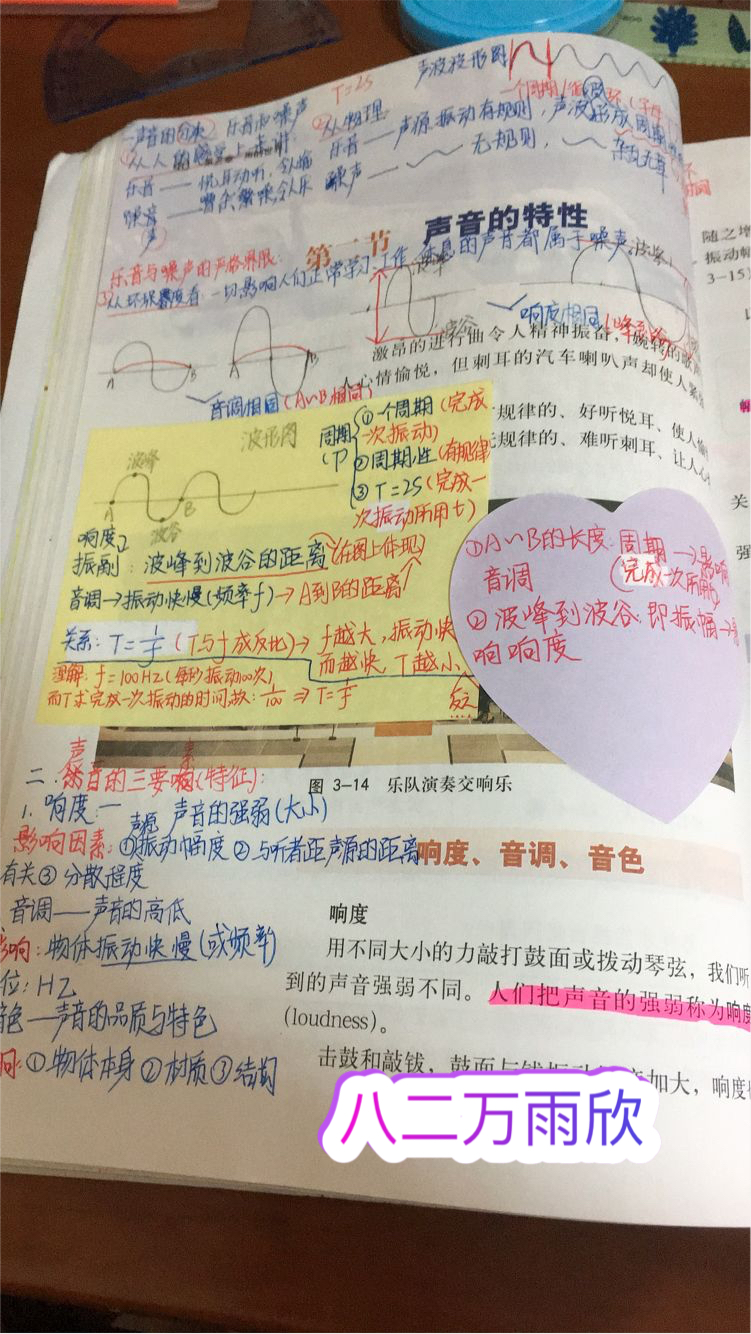 声波波形图
T=2S
一个周期
声音的分类 乐音和噪声 ②从物理
①从人的感觉上来讲:
乐音——声源振动有规则,声波形成周期
乐音——悦耳动听,令人愉
噪声——无规则,杂乱无章
第二节 声音的特性
乐音与噪声的严格界限:
从环保角度看:一切影响人们正常学习工作休息的声音都属于噪声
波峰
波峰
波谷
响度相同
A B
A B
音调相同(A~B相同)
激昂的进行曲令人精神振奋,婉转的歌声
人心情愉悦,但刺耳的汽车喇叭声却使人紧张
规律的、好听悦耳、使人愉
无规律的、难听刺耳、让人心
波形图
周期(T)
①一个周期(完成一次振动)
②周期性(有规律
③T=2S(完成一次振动所用t)
波峰
A B
波谷
响度
振副:波峰到波谷的距离(在图上体现)
音调→振动快慢(频率f)→A到B的距离
关系:T=1/f(T与f成反比)→f越大,振动快
而越快,T越小
理解:f=100HZ(每秒振动100次)
而T求完成一次振动的时间,故:1/100⇒T=1/f
①A~B的长度:周期→影响
(完成一次所用t)
音调
②波峰到波谷:即振幅→影
响响度
图 3-14 乐队演奏交响乐
二.乐音的三要素(特征):
1.响度:—声音的强弱(大小)
影响因素:①声源振动幅度②与听者距声源的距离
有关③分散程度
响度、音调、音色
音调——声音的高低
影响:物体振动快慢(或频率)
位:HZ
音色—声音的品质与特色
①物体本身②材质③结构
响度
用不同大小的力敲打鼓面或拨动琴弦,我们听
到的声音强弱不同。人们把声音的强弱称为响度
(loudness)。
击鼓和敲钹,鼓面与钹振动
加大,响度
随之增
振动幅
3-15)
关
强
八二万雨欣